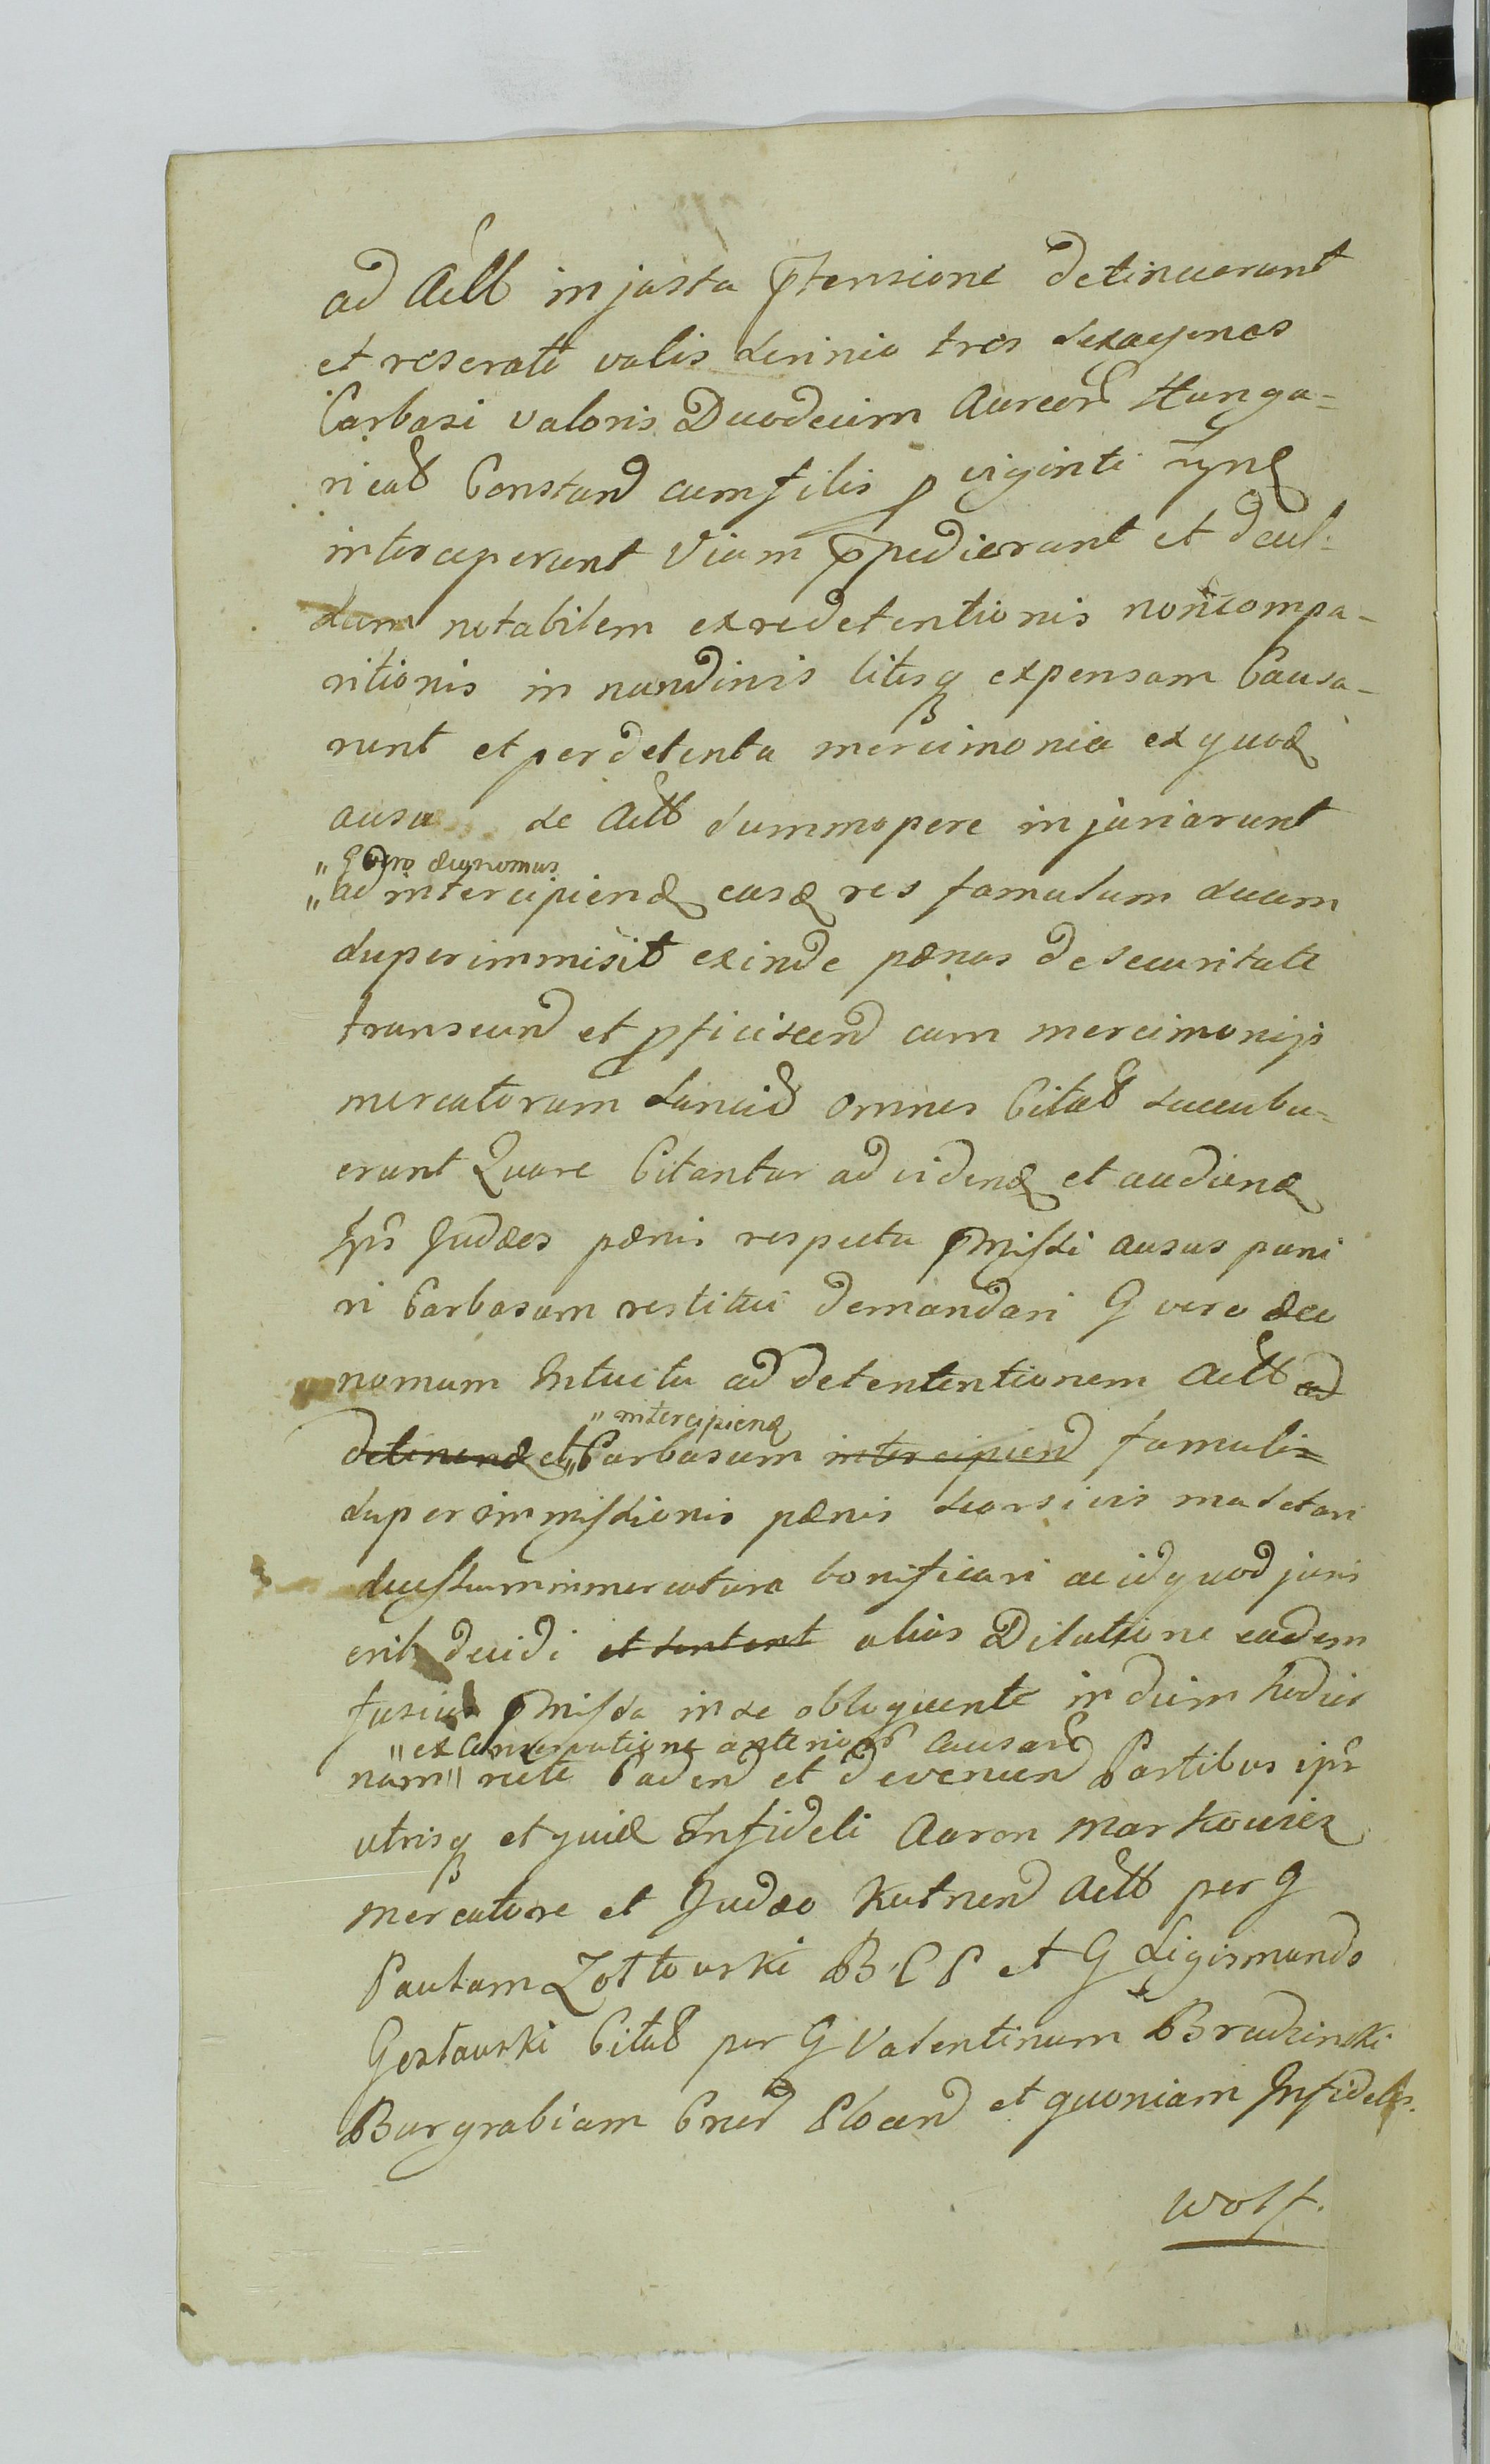 ad Actt injusta ptensione detinuerunt
et reserati valis scrinio tres sexagenas
Carbasi valoris Duodecim Aureor Hunga=
rical Constand cum filis p viginti
interceperunt viam ppedierunt et
notabilem ex re detentionis noncompa-
ritionis in nundinis litisq expensam Causa-
runt et per detenta mercimonia ex quod
ausu se Actt summopere injuriarunt
"G Vero æconomus
"ad intercipiend easd res famulum suum
superimmisit exinde pænas de securitate
transeund et pficiscend cum mercimonijs
mercatorum sancit omnes Citat succubu-
erunt Quare Citantur ad vidend et audiend
Ips Judæos pænis respectu pmissi ausus puni
ri Carbasum restitui demandari G vero æco
nomum Intuitu ad detententionem Actt ad
" intercipiend
detinend et "Carbasum intercipiend famuli=
superimmissionis pænis seorsivis mulctari
in mercatura bonificari ac id quod juris
erit decidi et sentent alias Dilatione eadem
fusius pmissa in se obloquente in diem hodier
"ex Conservatione anterior Causar
num" recte Cadend et devenien Partibus ips
utrisq et quid Infideli Aaron Markowicz
Mercatore et Judæo Kutnend Actt per G
Paulum Zottowski B.C.P et G Sigismundo
Gostawski Citat per G Valentinum Brudzinski
Burgrabium Cned Plocen et quoniam Infidelis.
Wolf.